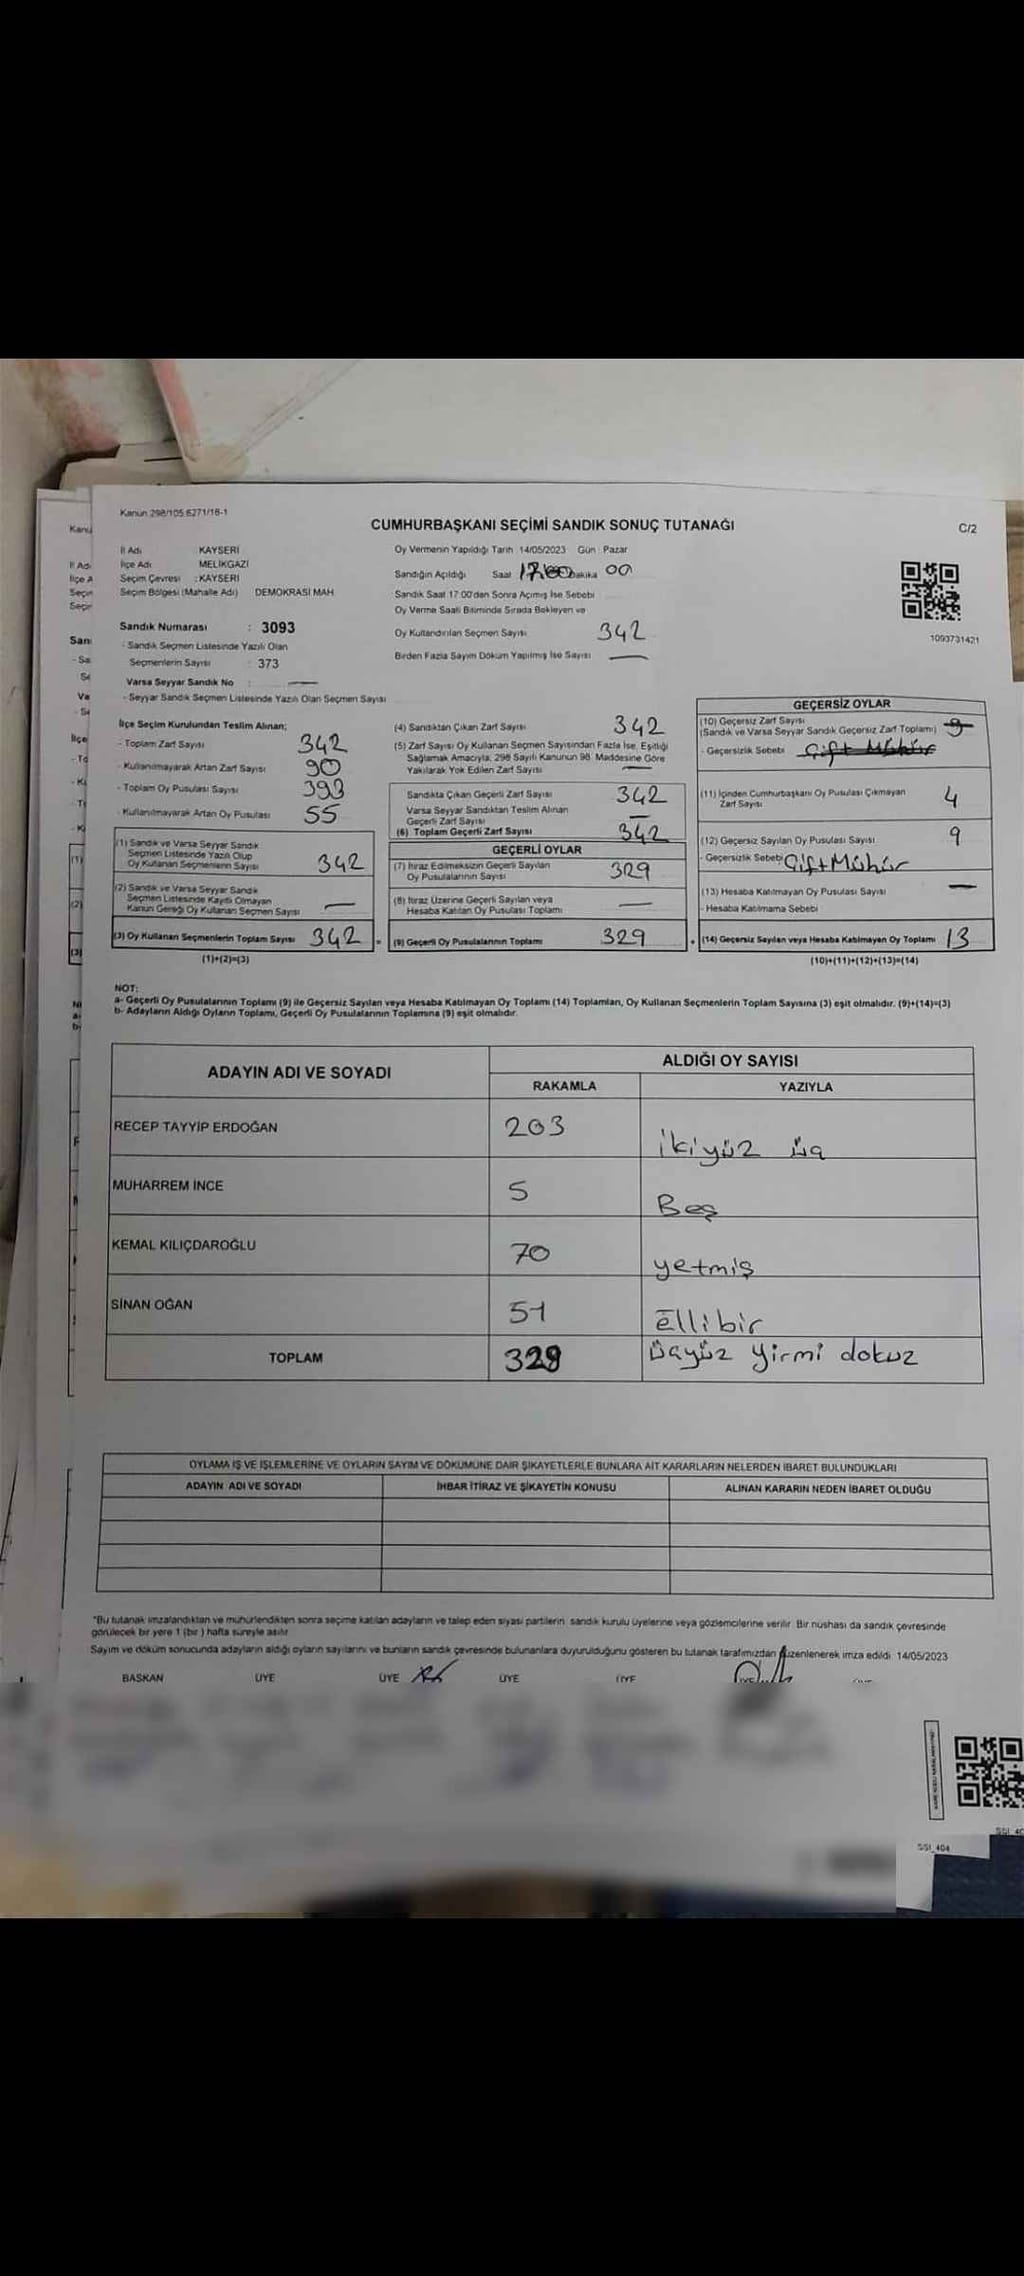 Kanun 298/105 6271/16-1
CUMHURBAŞKANI SEÇİMİ SANDIK SONUÇ TUTANAĞI
C/2
İl Adı KAYSERİ
İlçe Adı MELİKGAZİ
Seçim Çevresi : KAYSERİ
Seçim Bölgesi (Mahalle Adı) DEMOKRASİ MAH
Sandık Numarası : 3093
- Sandık Seçmen Listesinde Yazılı Olan
Seçmenlerin Sayısı : 373
Varsa Seyyar Sandık No : —
- Seyyar Sandık Seçmen Listesinde Yazılı Olan Seçmen Sayısı
Oy Vermenin Yapıldığı Tarih 14/05/2023 Gün : Pazar
Sandığın Açıldığı Saat 17 Dakika 00
Sandık Saat 17:00'den Sonra Açılmış İse Sebebi
Oy Verme Saati Bitiminde Sırada Bekleyen ve
Oy Kullandırılan Seçmen Sayısı 342
Birden Fazla Sayım Döküm Yapılmış İse Sayısı —
1093731421
İlçe Seçim Kurulundan Teslim Alınan;
- Toplam Zarf Sayısı 342
- Kullanılmayarak Artan Zarf Sayısı 90
- Toplam Oy Pusulası Sayısı 393
- Kullanılmayarak Artan Oy Pusulası 55
(1) Sandık ve Varsa Seyyar Sandık
Seçmen Listesinde Yazılı Olup
Oy Kullanan Seçmenlerin Sayısı 342
(2) Sandık ve Varsa Seyyar Sandık
Seçmen Listesinde Kayıtlı Olmayan
Kanun Gereği Oy Kullanan Seçmen Sayısı —
(3) Oy Kullanan Seçmenlerin Toplam Sayısı 342
(1)+(2)=(3)
(4) Sandıktan Çıkan Zarf Sayısı 342
(5) Zarf Sayısı Oy Kullanan Seçmen Sayısından Fazla İse, Eşitliği
Sağlamak Amacıyla, 298 Sayılı Kanunun 98. Maddesine Göre
Yakılarak Yok Edilen Zarf Sayısı —
Sandıkta Çıkan Geçerli Zarf Sayısı 342
Varsa Seyyar Sandıktan Teslim Alınan
Geçerli Zarf Sayısı —
(6) Toplam Geçerli Zarf Sayısı 342
GEÇERLİ OYLAR
(7) İtiraz Edilmeksizin Geçerli Sayılan
Oy Pusulalarının Sayısı 329
(8) İtiraz Üzerine Geçerli Sayılan veya
Hesaba Katılan Oy Pusulası Toplamı —
(9) Geçerli Oy Pusulalarının Toplamı 329
GEÇERSİZ OYLAR
(10) Geçersiz Zarf Sayısı
(Sandık ve Varsa Seyyar Sandık Geçersiz Zarf Toplamı) 9
- Geçersizlik Sebebi Çift Mühür
(11) İçinden Cumhurbaşkanı Oy Pusulası Çıkmayan
Zarf Sayısı 4
(12) Geçersiz Sayılan Oy Pusulası Sayısı 9
- Geçersizlik Sebebi Çift Mühür
(13) Hesaba Katılmayan Oy Pusulası Sayısı —
- Hesaba Katılmama Sebebi
(14) Geçersiz Sayılan veya Hesaba Katılmayan Oy Toplamı 13
(10)+(11)+(12)+(13)=(14)
NOT:
a- Geçerli Oy Pusulalarının Toplamı (9) ile Geçersiz Sayılan veya Hesaba Katılmayan Oy Toplamı (14) Toplamları, Oy Kullanan Seçmenlerin Toplam Sayısına (3) eşit olmalıdır. (9)+(14)=(3)
b- Adayların Aldığı Oyların Toplamı, Geçerli Oy Pusulalarının Toplamına (9) eşit olmalıdır.
ADAYIN ADI VE SOYADI
ALDIĞI OY SAYISI
RAKAMLA YAZIYLA
RECEP TAYYİP ERDOĞAN 203 ikiyüz üç
MUHARREM İNCE 5 Beş
KEMAL KILIÇDAROĞLU 70 yetmiş
SİNAN OĞAN 51 ellibir
TOPLAM 329 Üçyüz yirmi dokuz
OYLAMA İŞ VE İŞLEMLERİNE VE OYLARIN SAYIM VE DÖKÜMÜNE DAİR ŞİKAYETLERLE BUNLARA AİT KARARLARIN NELERDEN İBARET BULUNDUKLARI
ADAYIN ADI VE SOYADI İHBAR İTİRAZ VE ŞİKAYETİN KONUSU ALINAN KARARIN NEDEN İBARET OLDUĞU
"Bu tutanak imzalandıktan ve mühürlendikten sonra seçime katılan adayların ve talep eden siyasi partilerin sandık kurulu üyelerine veya gözlemcilerine verilir. Bir nüshası da sandık çevresinde
görülecek bir yere 1 (bir ) hafta süreyle asılır.
Sayım ve döküm sonucunda adayların aldığı oyların sayılarını ve bunların sandık çevresinde bulunanlara duyurulduğunu gösteren bu tutanak tarafımızdan düzenlenerek imza edildi 14/05/2023
BAŞKAN ÜYE ÜYE ÜYE ÜYE ÜYE ÜYE
SSI_404